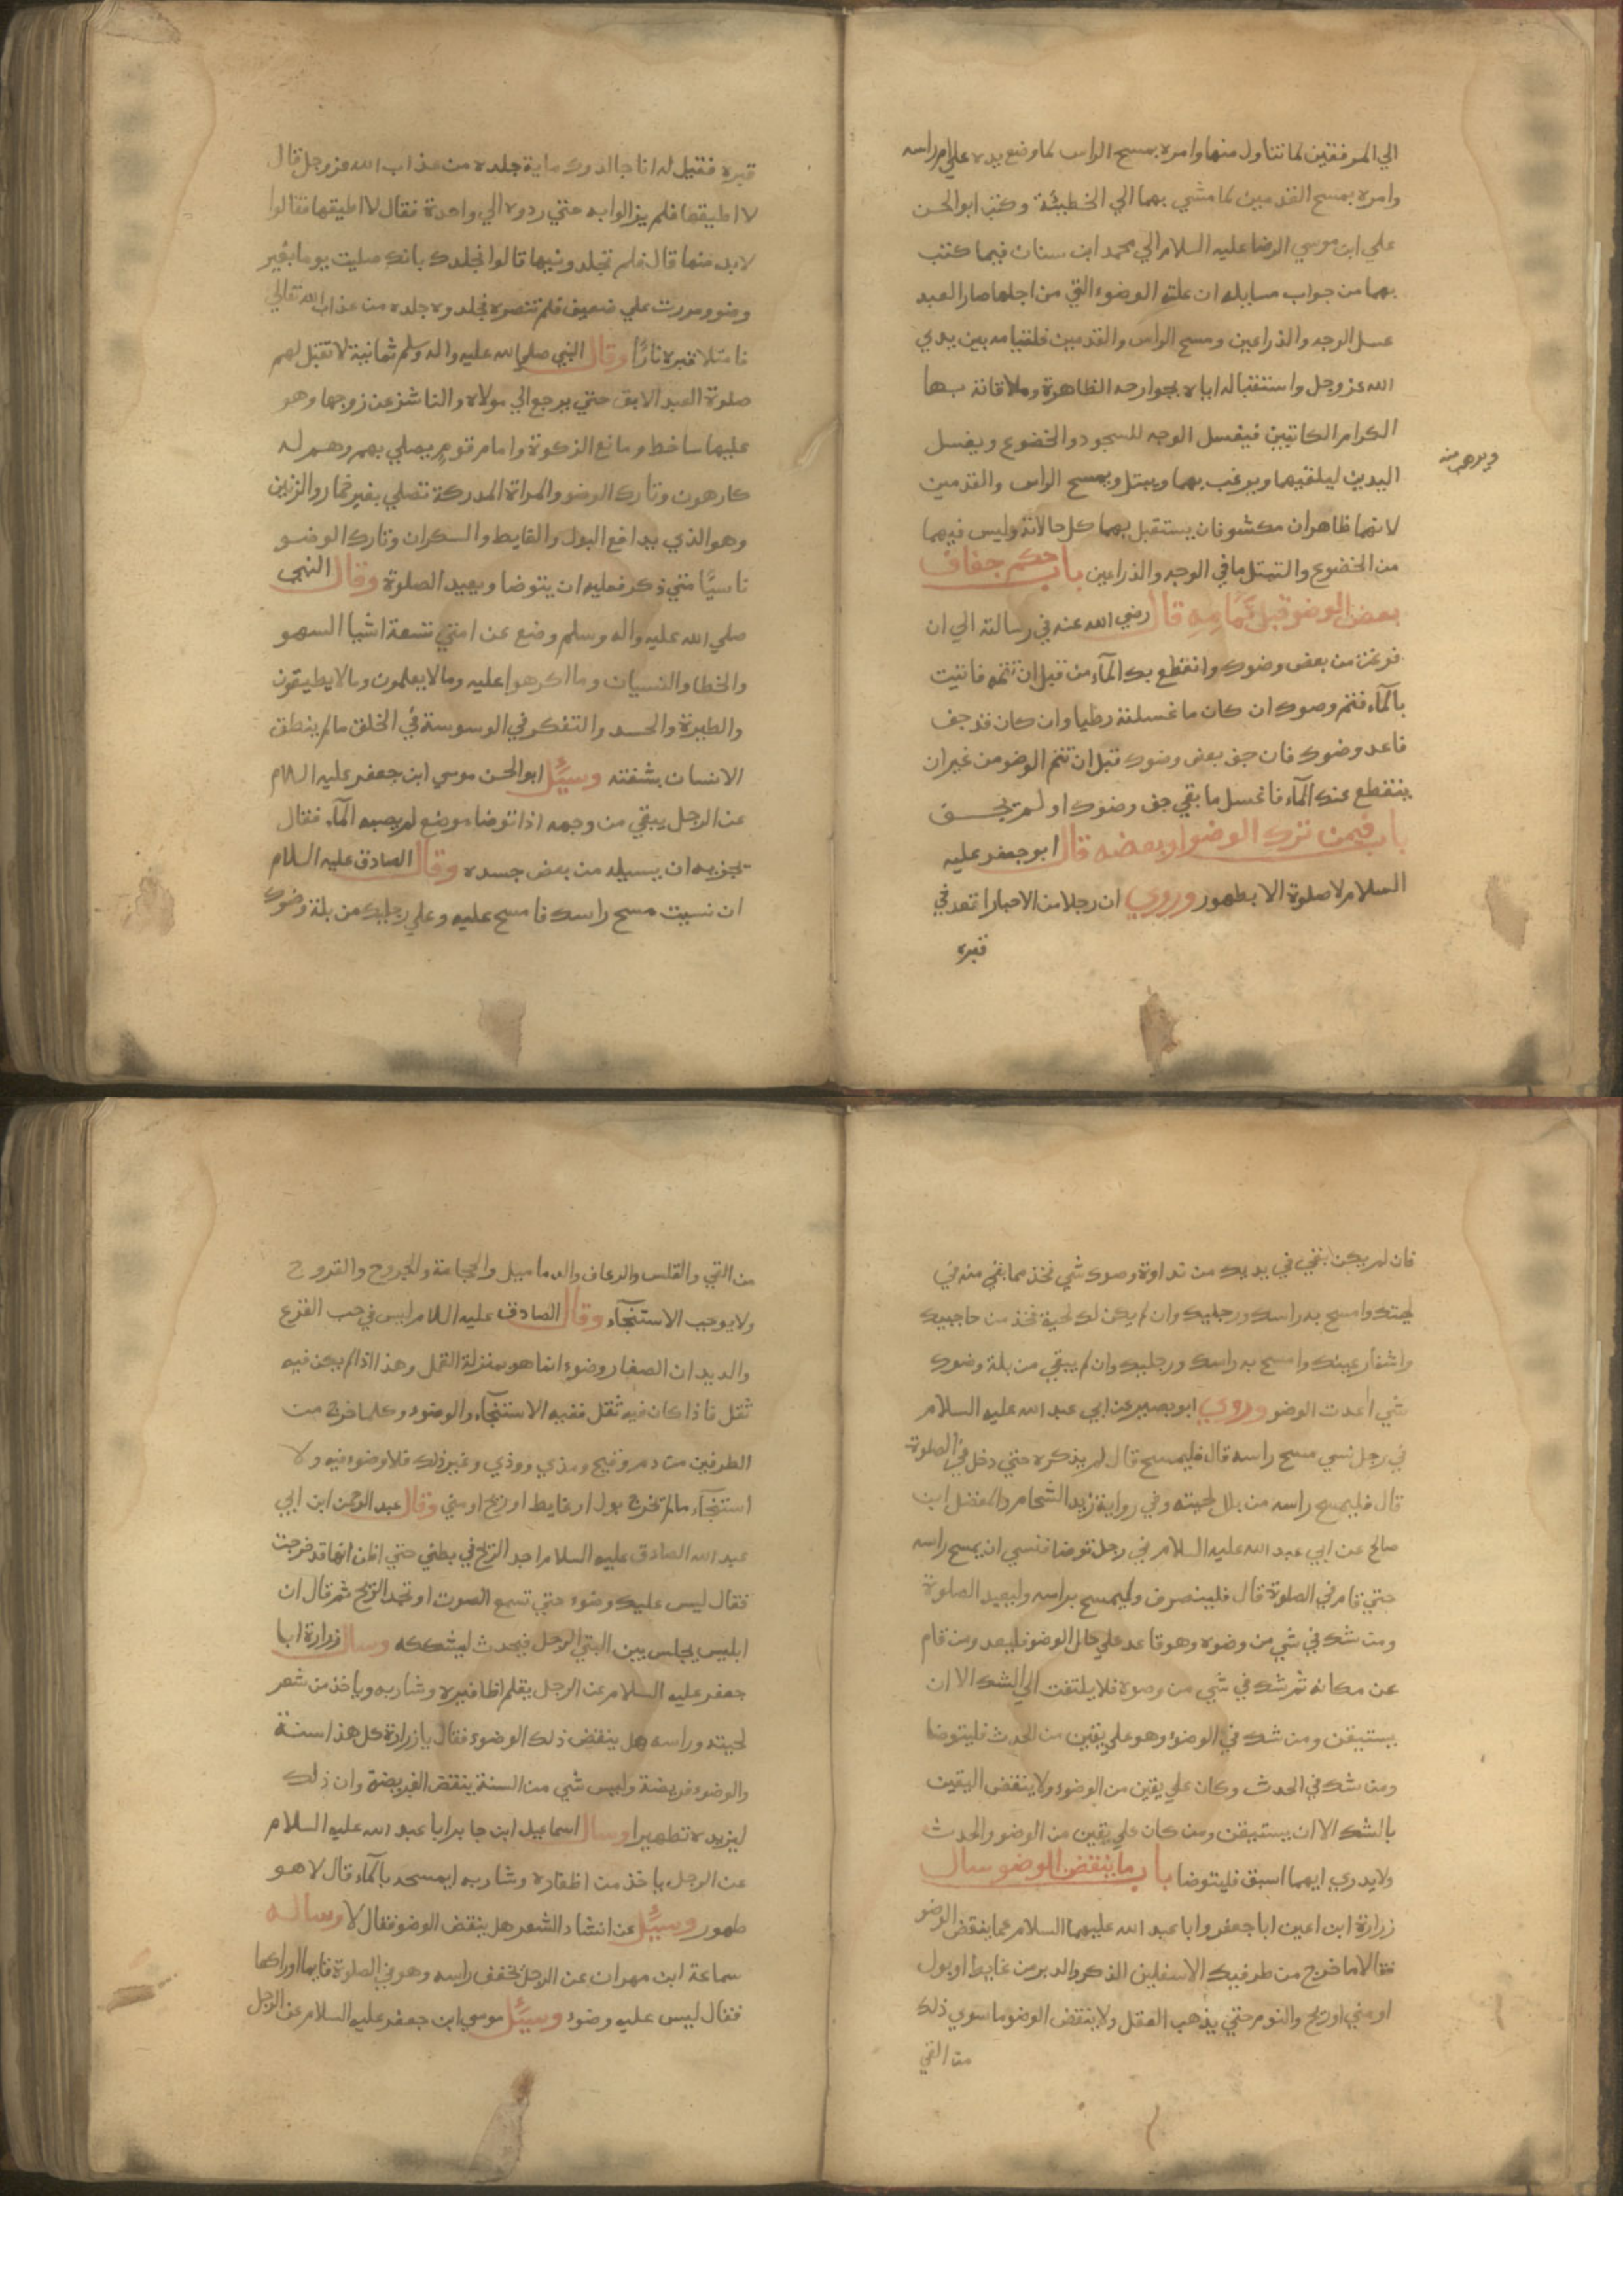 الي المرفقين لما تناول منها وامره بمسح الراس لما وضع يده علي ام راسه
وامره بمسح القدمين لما مشي بهما الي الخطيئة وكتب ابو الحسن
علي ابن موسي الرضا عليه السلام الي محمد ابن سنان فيما كتب
بهما من جواب مسايله ان علة الوضوء التي من اجلها صار العبد
عسل الوجه والذراعين ومسح الراس والقدمين فلقيامه بين يدي
الله عز وجل واستقباله اياه بجوارحه الظاهرة وملاقاته بها
الكرام الكاتبين فيغسل الوجه للسجود والخضوع ويغسل
اليدين ليلقيهما ويرغب بهما ويبتل ويمسح الراس والقدمين
ويرهب منه
لانهما ظاهران مكشوفان يستقبل بهما كل حالاته وليس فيهما
من الخضوع والتبتل ما في الوجه والذراعين باب حكم جفاف
بعض الوضو قبل تمامه قال رضي الله عنه في رسالته الي ان
فرغت من بعض وضوك وانقطع بك المآء من قبل ان تتمه فاتيت
بالمآء فتمم وصوك ان كان ما غسلته رطبا وان كان قد جف
فاعد وضوك فان جف بعض وضوك قبل ان تتم الوضو من غير ان
ينقطع عنك المآء فاغسل ما بقي جف وضوك او لم يجف
باب فيمن ترك الوضوء او بعضه قال ابو جعفر عليه
السلام لا صلوة الا بطهور وروي ان رجلا من الاحبار اقعد في
قبره
قبره فقيل له انا جالدوك ماية جلدة من عذاب الله عز وجل قال
لا اطيقها فلم يزالوا به حتي ردوه الي واحدة فقال لا اطيقها فقالوا
لا بد منها قال فلم تجلدونيها قالوا نجلدك بانك صليت يوما بغير
وضو ومررت علي ضعيف فلم تنصره فجلدوه جلده من عذاب الله تعالي
فامتلا قبره نارًا وقال النبي صلي الله عليه واله وسلم ثمانية لا تقبل لهم
صلوة العبد الابق حتي يرجع الي مولاه والناشز عن زوجها وهو
عليها ساخط ومانع الزكوة وامام قوم يصلي بهم وهم له
كارهون وتارك الوضو والمراة المدركة تصلي بغير خمار والزنين
وهو الذي يدافع البول والغايط والسكران وتارك الوضو
ناسيًّا متي ذكر فعليه ان يتوضا ويعيد الصلوة وقال النبي
صلي الله عليه واله وسلم وضع عن امتي تسعة اشيا السهو
والخطا والنسيان وما اكرهوا عليه وما لا يعلمون وما لا يطيقون
والطيرة والحسد والتفكر في الوسوسة في الخلق ما لم ينطق
الانسان بشفته وسئيل ابو الحسن موسي ابن جعفر عليه السلام
عن الرجل يبقي من وجهه اذا توضا موضع لم يصبه المآء فقال
يجزيه ان يبسيله من بعض جسده وقال الصادق عليه السلام
ان نسيت مسح راسك فامسح عليه وعلي رجليك من بلة وضوك
فان لم يكن بقي في يديك من نداوة وصوك شي فخذ مما بقي منه في
لحيتك وامسح به راسك ورجليك وان لم يكن لك لحية فخذ من حاجبيك
واشفار عينك وامسح به راسك ورجليك وان لم يبقي من بلة وضوك
شي اعدت الوضو وروي ابو بصير عن ابي عبد الله عليه السلام
في رجل نسي مسح راسه قال فليمسح قال لم يذكره حتي دخل في الصلوة
قال فليمسح راسه من بلل لحيته وفي رواية زيد الشحام والمفضل ابن
صالح عن ابي عبد الله عليه السلام في رجل توضا فنسي ان يمسح راسه
حتي قام في الصلوة قال فلينصرف وليمسح براسه وليعيد الصلوة
ومن شك في شي من وضوه وهو قاعد علي حال الوضو فليعد ومن قام
عن مكانه ثم شك في شي من وصوه فلا يلتفت الي الشك الا ان
يستيقن ومن شك في الوضوء وهو علي يقين من الحدث فليتوضا
ومن شك في الحدث وكان علي يقين من الوضوء ولا ينقض اليقين
بالشك الا ان يستيقن ومن كان علي يقين من الوضو والحدث
ولا يدري ايهما اسبق فليتوضا باب ما ينقض الوضو سال
زرارة ابن اعين ابا جعفر وابا عبد الله عليهما السلام عما ينقض الوضو
فقالا ما خرج من طرفيك الاسفلين الذكر والدبر من غايط او بول
او مني او ريح والنوم حتي يذهب العقل ولا ينقض الوضو ما سوي ذلك
من القي
من القي والقلس والرعاف والدماميل والحجامة والجروح والقروح
ولا يوجب الاستنجآء وقال الصادق عليه السلام ليس في حب القرع
والديدان الصغار وضوء انما هو بمنزلة القمل وهذا اذا لم يكن فيه
ثقل فاذا كان فيه ثقل ففيه الاستنجآء والوضوء وكلما خرج من
الطرفين من دم وقيح ومذي ووذي وغير ذلك فلا وضوء فيه ولا
استنجآء ما لم تخرج بول او غايط او ريح او مني وقال عبد الرحمن ابن ابي
عبد الله الصادق عليه السلام اجد الريح في بطني حتي اظن انها قد خرجت
فقال ليس عليك وضوء حتي تسمع الصوت او تجد الريح ثم قال ان
ابليس يجلس بين اليتي الرجل فيحدث ليشككه وسال زرارة ابا
جعفر عليه السلام عن الرجل يقلم اظافيره وشاربه وياخذ من شعر
لحيته وراسه هل ينقض ذلك الوضوء فقال يا زرارة كل هذا سنة
والوضوء فريضة وليس شي من السنة ينقض الفريضة وان ذلك
ليزيده تطهيرا وسال اسماعيل ابن جابر ابا عبد الله عليه السلام
عن الرجل ياخذ من اظفاره وشاربه ايمسحه بالمآء قال لا هو
طهور وسئيل عن انشاد الشعر هل ينقض الوضو فقال لا وساله
سماعة ابن مهران عن الرجل يخفق راسه وهو في الصلوة قايما او راكعا
فقال ليس عليه وضوء وسئيل موسي ابن جعفر عليه السلام عن الرجل